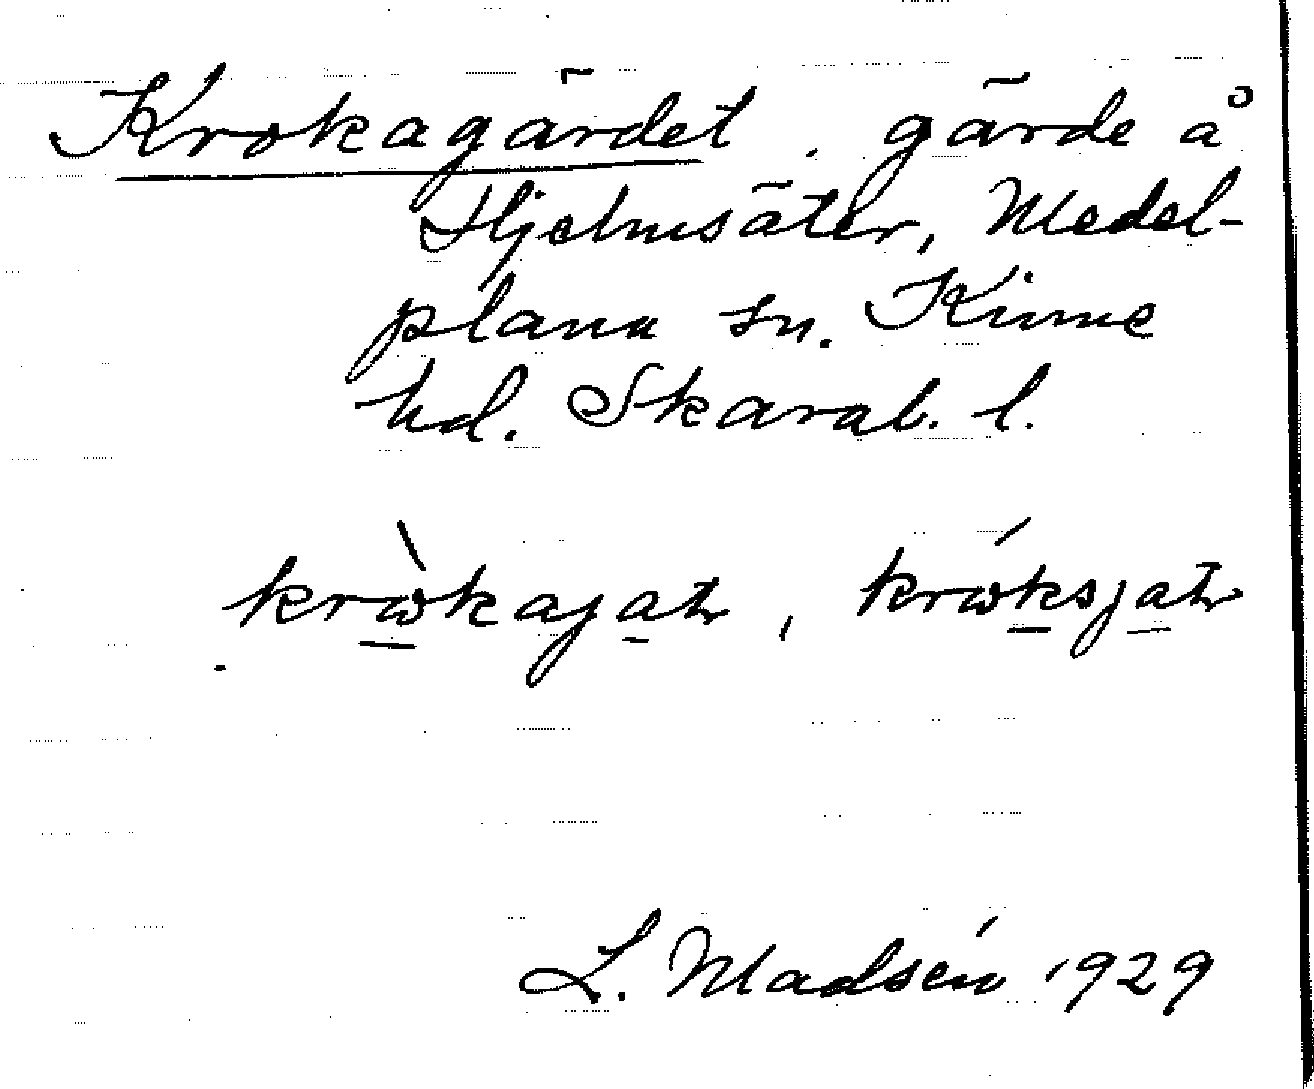 Krokagärdet. gärde å
Hjelmsäter, Medel-
plana sn. Kinne
hd. Skarab. l.
krωkajaṯ, krωksjaṯ
L. Madsén 1929